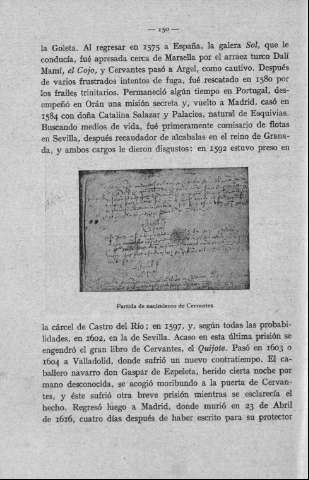 — 150 —
la Goleta. Al regresar en 1575 a España, la galera Sol, que le
conducía, fué apresada cerca de Marsella por el arraez turco Dalí
Mamí, el Cojo, y Cervantes pasó a Argel, como cautivo. Después
de varios frustrados intentos de fuga, fué rescatado en 1580 por
los frailes trinitarios. Permaneció algún tiempo en Portugal, des-
empeñó en Orán una misión secreta y, vuelto a Madrid, casó en
1584 con doña Catalina Salazar y Palacios, natural de Esquivias.
Buscando medios de vida, fué primeramente comisario de flotas
en Sevilla, después recaudador de alcabalas en el reino de Grana-
da, y ambos cargos le dieron disgustos: en 1592 estuvo preso en
Partida de nacimiento de Cervantes
la cárcel de Castro del Río; en 1597, y, según todas las probabi-
lidades, en 1602, en la de Sevilla. Acaso en esta última prisión se
engendró el gran libro de Cervantes, el Quijote. Pasó en 1603 o
1604 a Valladolid, donde sufrió un nuevo contratiempo. El ca-
ballero navarro don Gaspar de Ezpeleta, herido cierta noche por
mano desconocida, se acogió moribundo a la puerta de Cervan-
tes, y éste sufrió otra breve prisión mientras se esclarecía el
hecho. Regresó luego a Madrid, donde murió en 23 de Abril
de 1616, cuatro días después de haber escrito para su protector